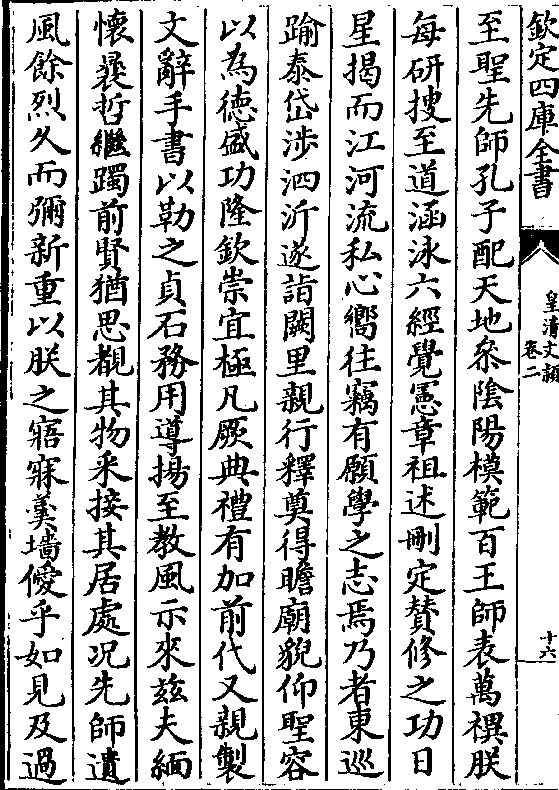 欽定四庫全書
皇清文穎
卷二
十六
至聖先師孔子配天地叅隂陽模範百王師表萬禩朕
每研搜至道涵泳六經覺憲章祖述刪定賛修之功日
星揭而江河流私心嚮往竊有願學之志焉乃者東巡
踰泰岱涉泗沂遂詣闕里親行釋奠得瞻廟貌仰聖容
以為徳盛功隆欽崇宜極凡厥典禮有加前代又親製
文辭手書以勒之貞石務用導揚至教風示來兹夫緬
懷曩哲繼躅前賢猶思覩其物釆接其居處况先師遺
風餘烈久而彌新重以朕之寤寐羮墻僾乎如見及過